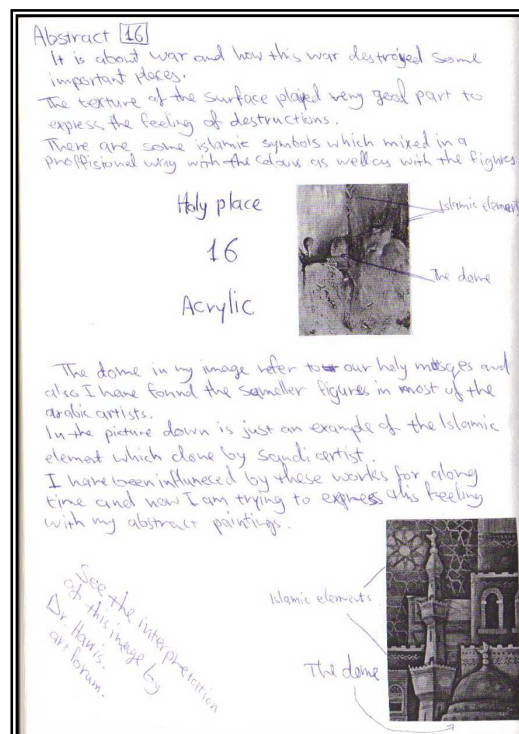 Abstract 16
It is about war and how this war destroyed some
important places.
The texture of the surface played very good part to
express the feeling of destructions.
There are some islamic symbols which mixed in a
proffisional way with the colour as well as with the figures
Holy place
16
Acrylic
Islamic element
The dome
The dome in my image refer to our holy mosqes and
also I have found the sameller figures in most of the
arabic artists.
In the picture down is just an example of the Islamic
element which done by Saudi artist.
I have been influnesed by these works for along
time and now I am trying to express this feeling
with my abstract paintings.
See the interpretation
of this image by
Dr. Harris.
art forum.
Islamic elements
The dome